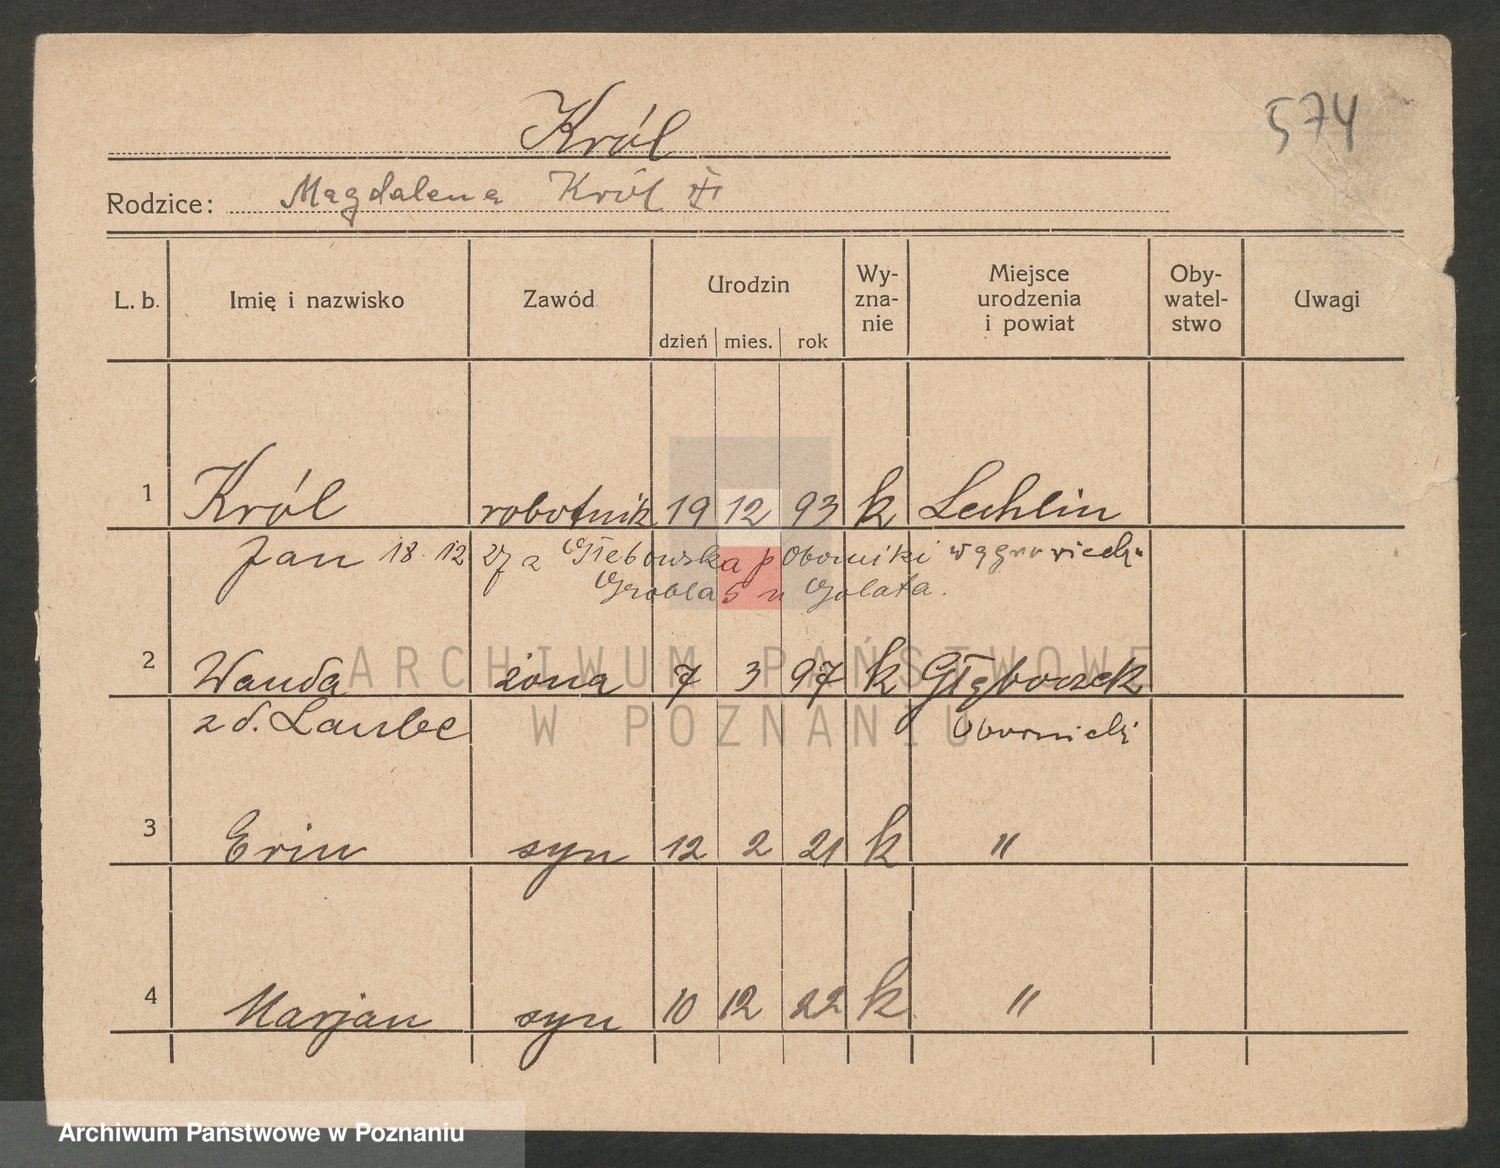 574
Król
Rodzice: Magdalena Król
L. b. Imię i nazwisko Zawód Urodzin dzień mies. rok Wy-zna-nie Miejsce urodzenia i powiat Oby-watel-stwo Uwagi
1 Król robotnik 19 12 93 k Lechlin
Jan 18. 12 27 z Głebowska p Oborniki wągrowiecki
Grobla 5 u Golata.
2 Wanda żona 7 3 97 k Głęboczek
z d. Laube Obornicki
3 Erin syn 12 2 21 k "
4 Marjan syn 10 12 22 k "
ARCHIWUM PAŃSTWOWE
W POZNANIU
Archiwum Państwowe w Poznaniu